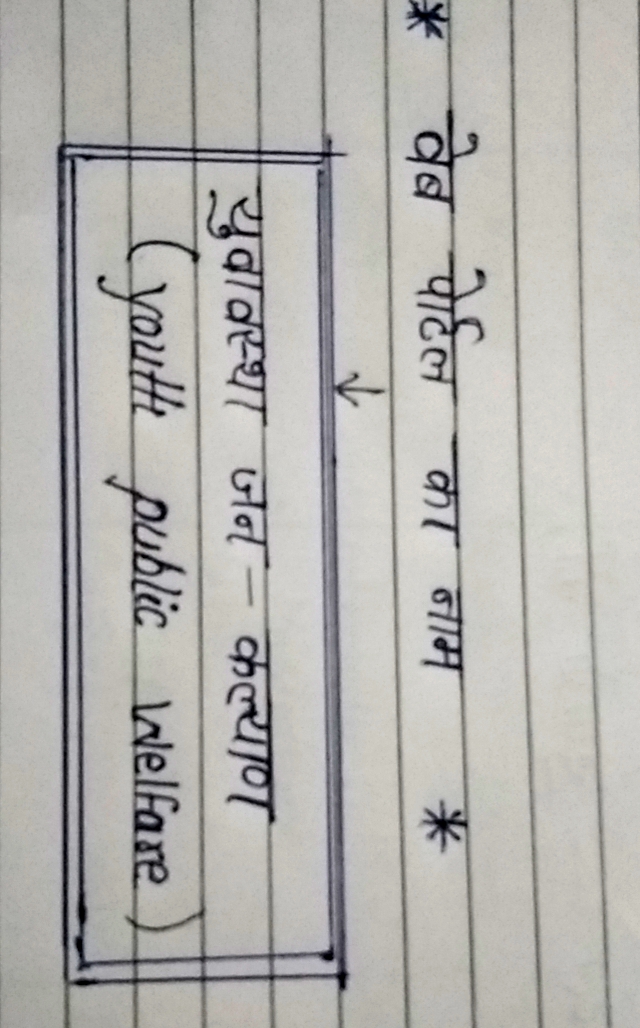 * वेब पोर्टल का नाम *
↓
युवावस्था जन - कल्याण
(youth public welfare)